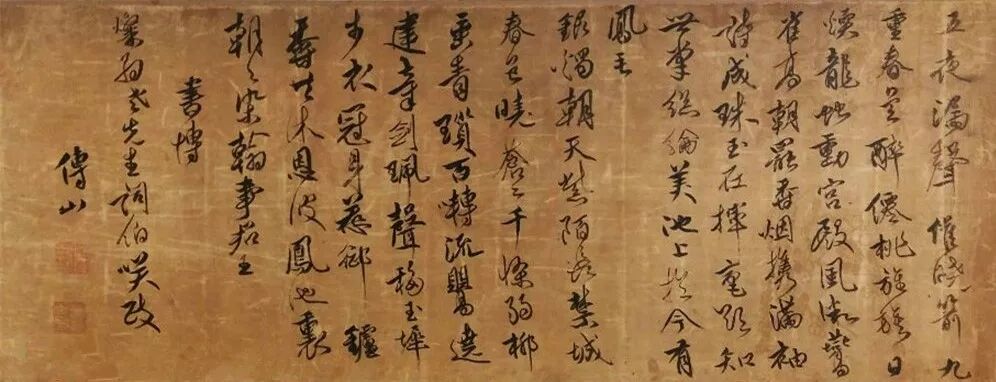 五夜漏聲催曉箭九
重春色醉僊桃旌旗日
煖龍蛇動宮殿風微鷰
雀高朝罷香烟攜滿袖
詩成珠玉在揮毫欲知
世掌絲綸美池上於今有
鳳毛
銀燭朝天紫陌長禁城
春色曉蒼〻千條弱柳
垂青瑣百囀流鶯遶
建章劍珮聲移玉墀
步衣冠身惹御鑪
香共沐恩波鳳池裏
朝〻染翰事君王
書博
老先生詞伯笑政
傅山